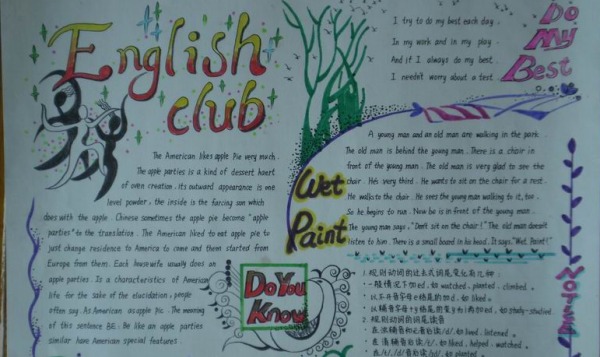 English
club
The American likes apple Pie very much.
The apple parties is a kind of dessert haert
of oven creation. its outward appearance is one
level powder, the inside is the farcing sun which
does with the apple. Chinese sometimes the apple pie become "apple
parties" to the translation. The American liked to eat apple pie to
just change residence to America to come and then started from
Europe from them. Each housewife usually does an
apple parties. Is a characteristics of American
life for the sake of the elucidation, people
often say. As American as apple pie. The meaning
of this sentence BE: Be like an apple parties
similar have American special features.
I try to do my best each day.
In my work and in my play.
And if I always do my best.
I needn't worry about a test.
Do
My
Best
Wet
Paint
A young man and an old man are walking in the park.
The old man is behind the young man. There is a chair in
front of the young man. The old man is very glad to see the
chair. He's very third. He wants to sit on the chair for a rest.
He walks to the chair. He sees the young man walking to it, too.
So he begins to run. Now he is in front of the young man.
The young man says, "Don't sit on the chair!" The old man doesn't
listen to him. There is a small board in his hand. It says, "Wet Paint!"
Do You
Know
1. 规则动词的过去式词尾变化有几种:
·一般情况下加ed, 如 watched. planted. climbed.
·以不开音字母e结尾的加d, 如 liked.
·以辅音字母+y结尾的变y为i再加ed, 如 study-studied.
2. 规则动词的词尾读音
·在浊辅音和元音后读/d/, 如 lived. listened.
·在清辅音后读/t/, 如 liked. helped. watched.
·在/t/,/d/音后读/id/, 如 planted.